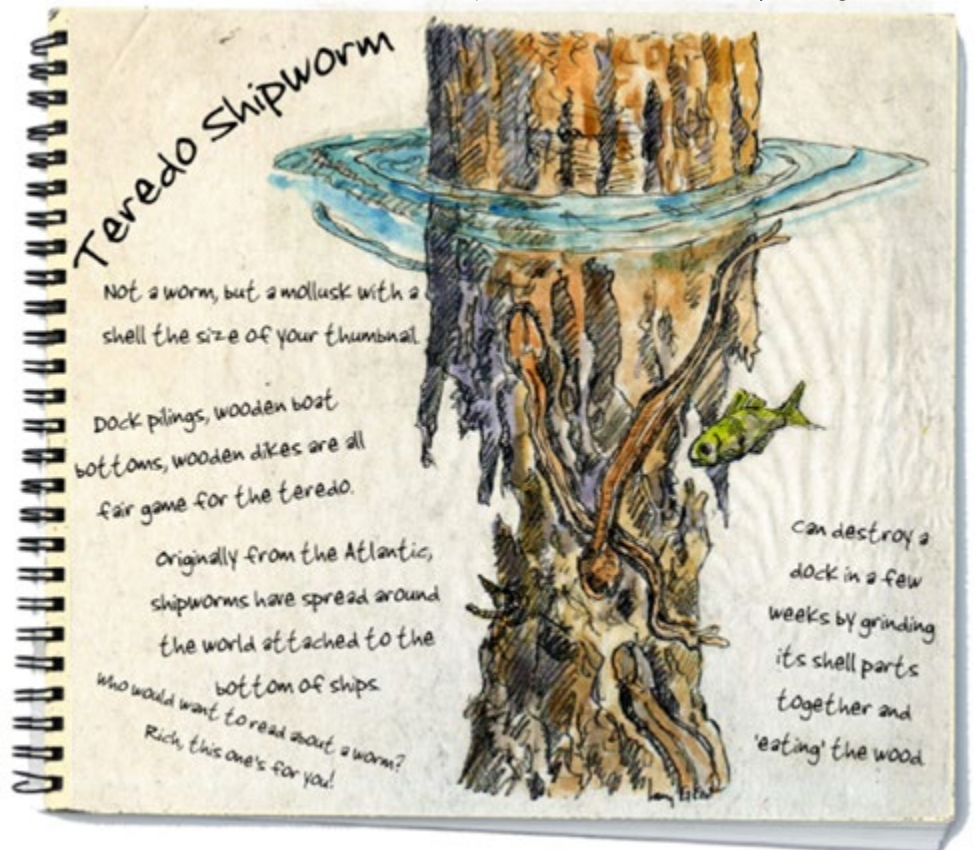 Teredo Shipworm
Not a worm, but a mollusk with a
shell the size of your thumbnail.
Dock pilings, wooden boat
bottoms, wooden dikes are all
fair game for the teredo.
Originally from the Atlantic,
shipworms have spread around
the world attached to the
bottom of ships.
Who would want to read about a worm?
Rich, this one's for you!
Can destroy a
dock in a few
weeks by grinding
its shell parts
together and
'eating' the wood